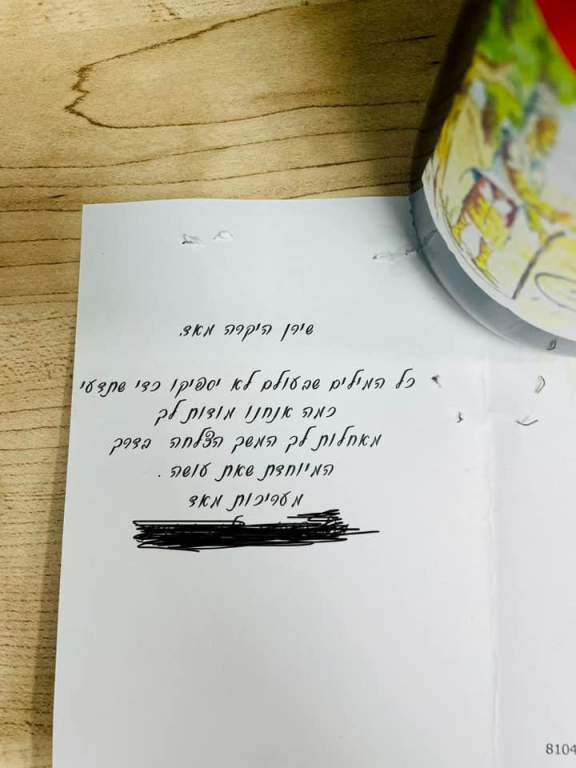 שירן היקרה מאד.
כל המילים שבעולם לא יספיקו כדי שתדעי
כמה אנחנו מודות לך
מאחלות לך המשך הצלחה בדרך
המיוחדת שאת עושה .
מעריכות מאד
8104